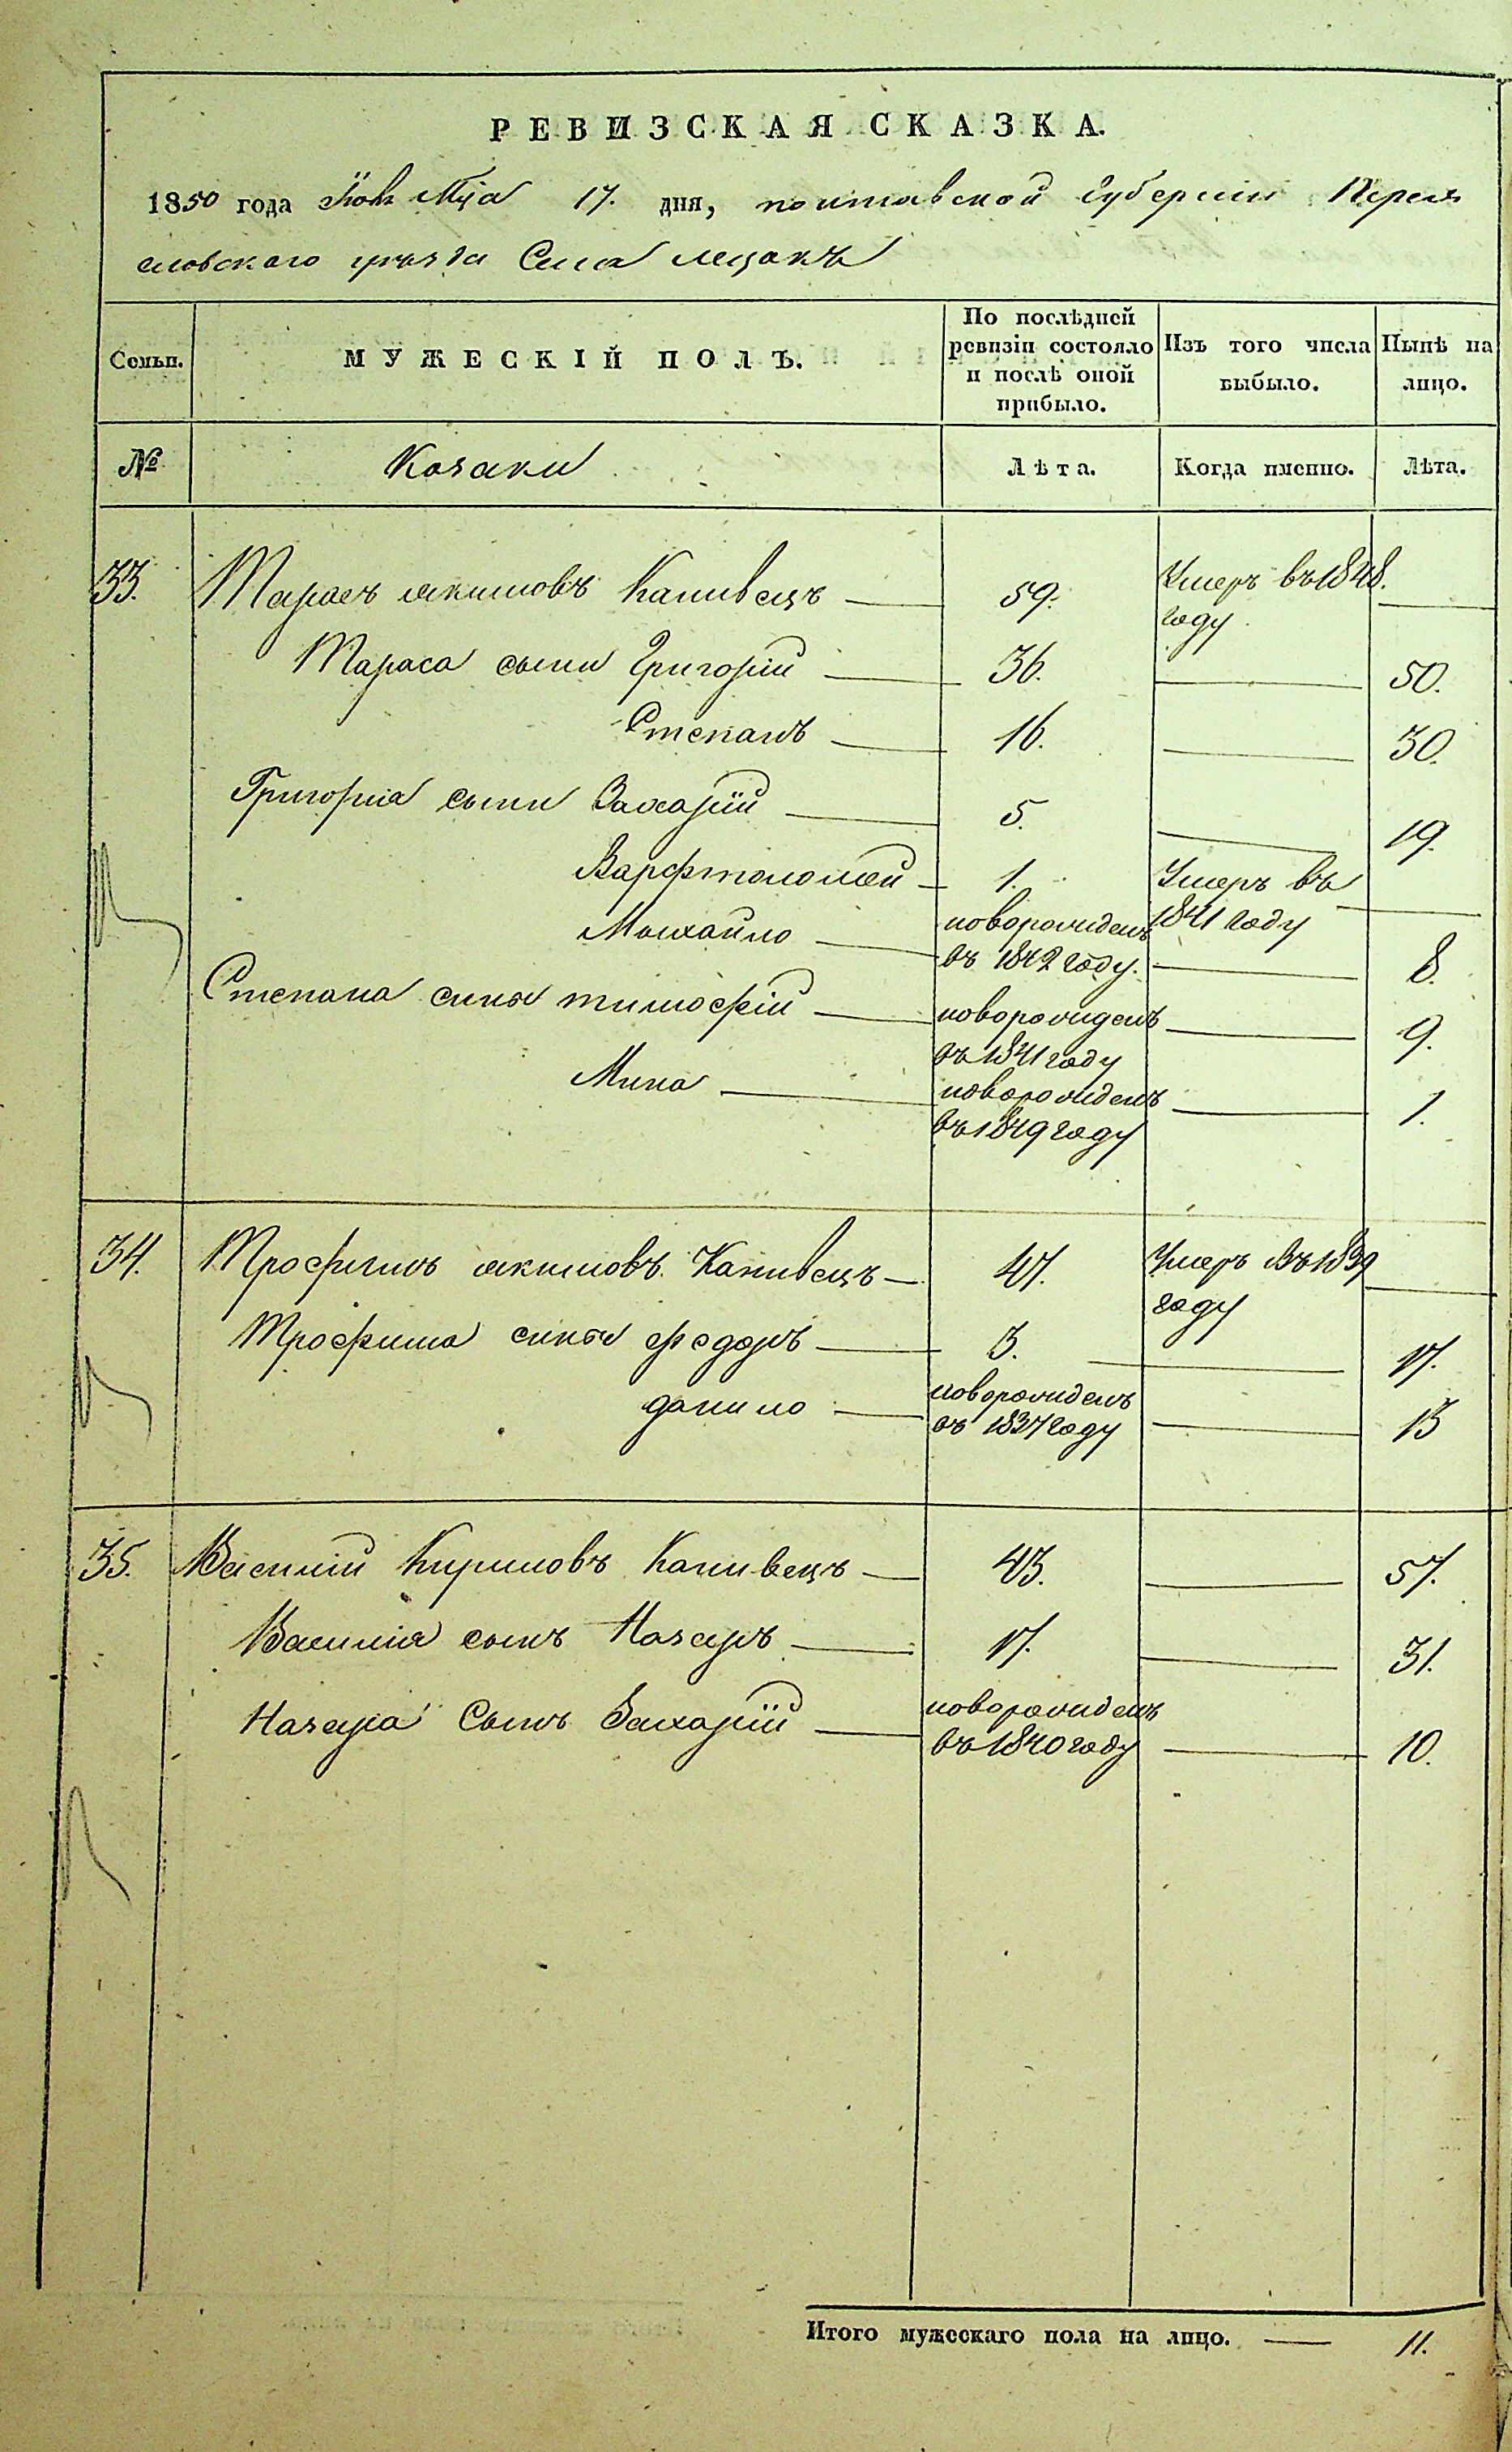 РЕВИЗСКАЯ СКАЗКА.
1850 года Мца 17. дня, полтавской Губерніи Перея
словскаго уезда Села лецокъ
Семьи. МУЖЕСКІЙ ПОЛЪ. По послѣдней ревизіи состояло и послѣ оной прибыло. Изъ того числа выбыло. Нынѣ на лицо.
№ Козаки Лѣта. Когда именно. Лѣта.
33. Тарасъ якимовъ Каниве​цъ 59. Умеръ въ 1848.
году
Тараса сыны Григорій 36. 50.
Степанъ 16. 30.
Григорія сыны Захарій 5. 19.
Варфтоломей 1. Умеръ въ
1841 году
Михайло новорожденъ
въ 1842 году. 8.
Степана сыны тимофій новорожденъ
въ 1841 году 9.
Мина новорожденъ
въ 1849 году 1.
34. Трофимъ якимовъ Канивецъ 47. Умеръ въ 1839
году
Трофима сыны федоръ 3. 17.
данило новорожденъ
въ 1837 году 13
35. Василій Кириловъ Канивецъ 43. 57.
Василія сынъ Назаръ 17. 31.
Назара Сынъ Захарій новорожденъ
въ 1840 году 10.
Итого мужескаго пола на лицо. 11.